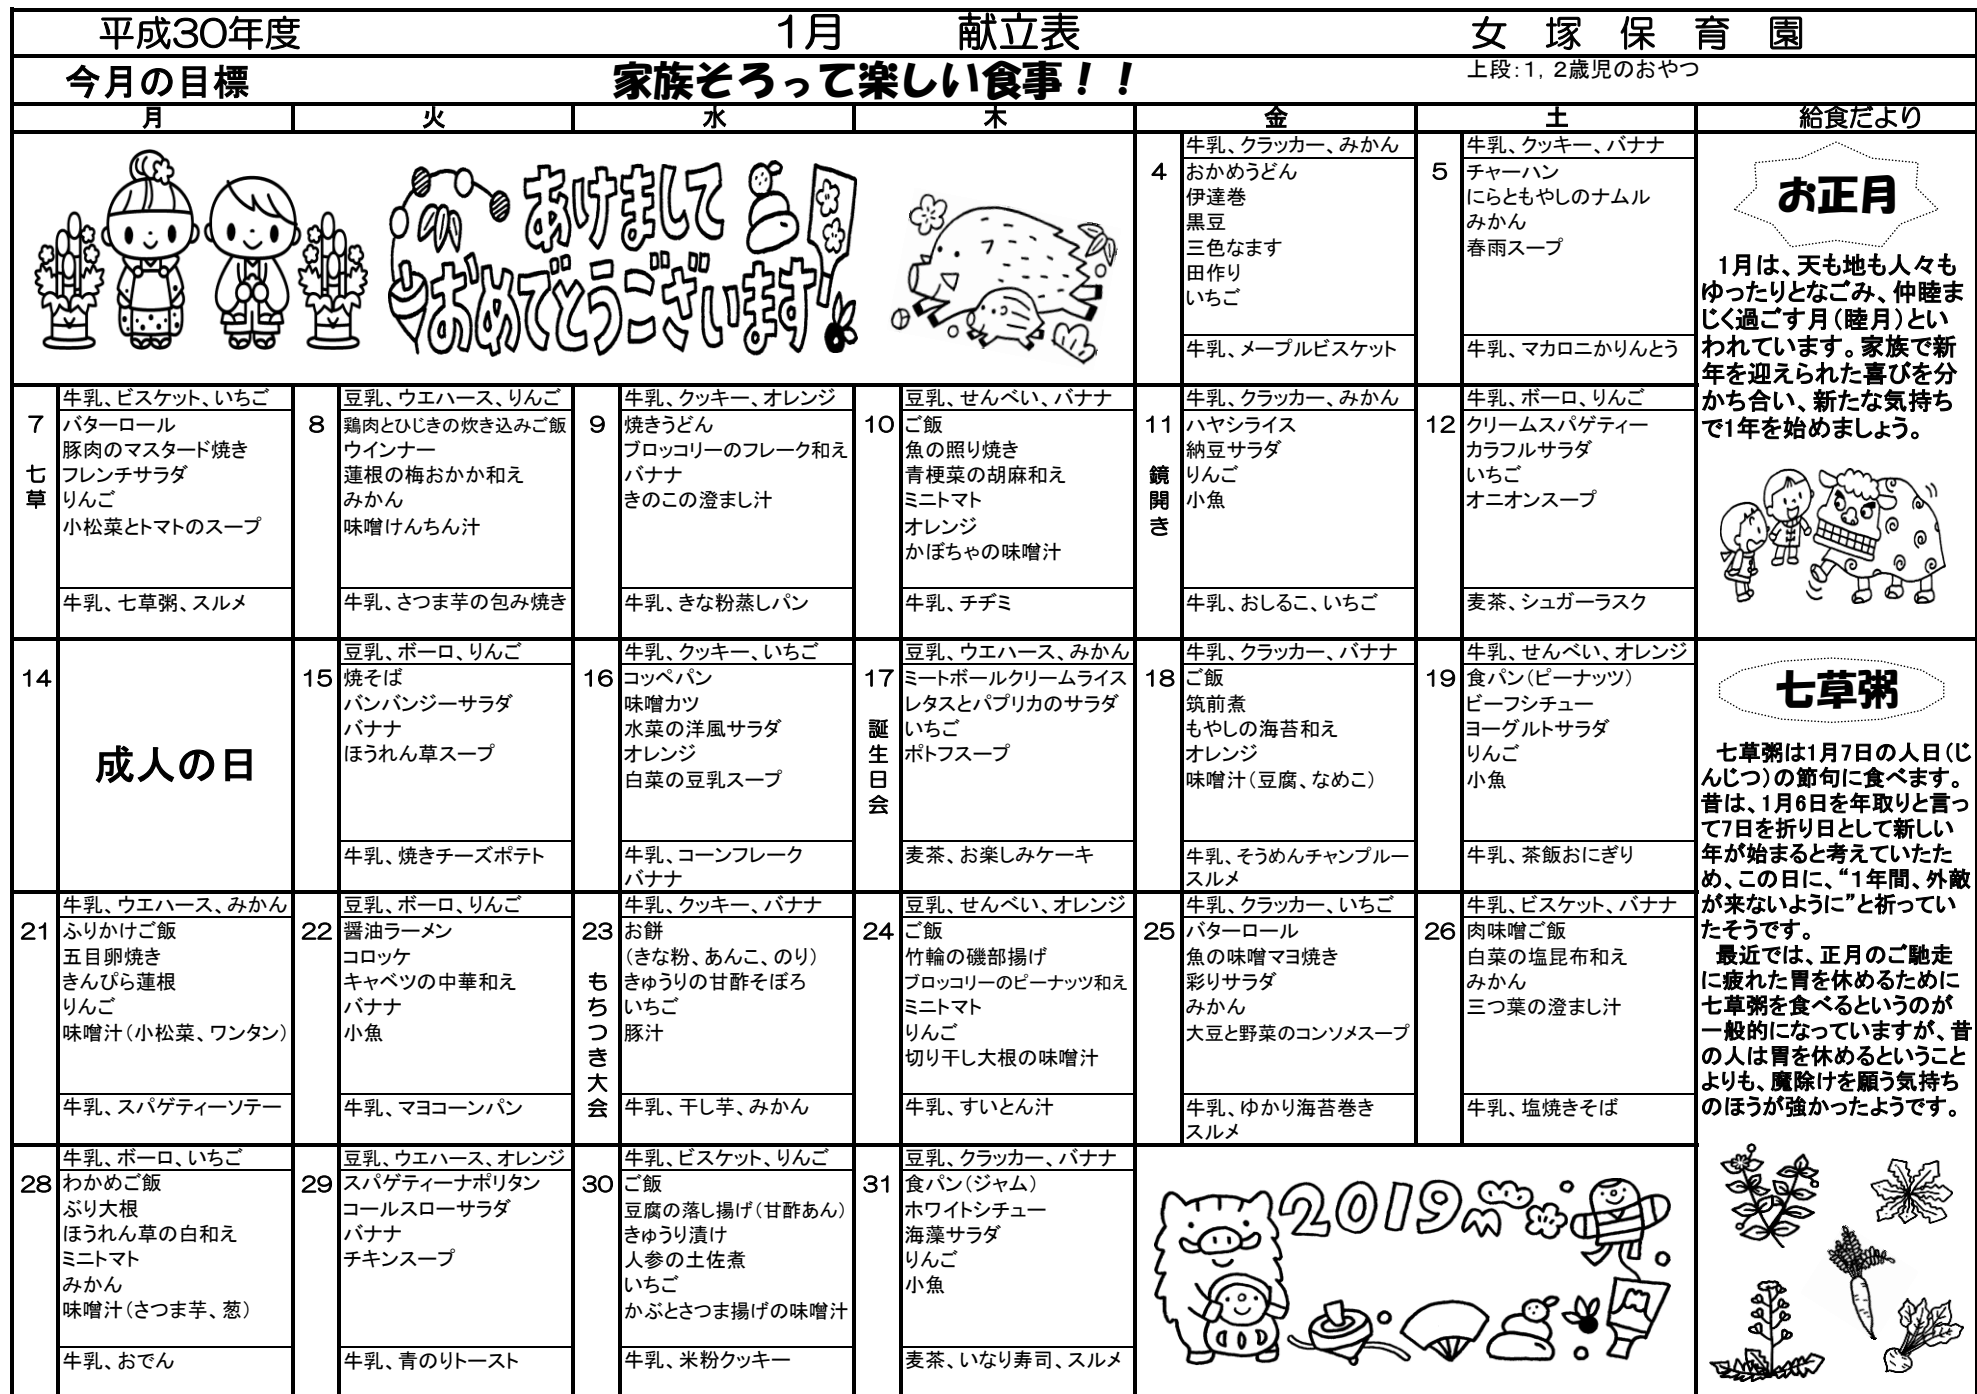 平成30年度　1月　献立表　女塚保育園
今月の目標　家族そろって楽しい食事！！　上段：1，2歳児のおやつ
月　火　水　木　金　土　給食だより
あけまして
おめでとうございます!
4
牛乳、クラッカー、みかん
おかめうどん
伊達巻
黒豆
三色なます
田作り
いちご
牛乳、メープルビスケット
5
牛乳、クッキー、バナナ
チャーハン
にらともやしのナムル
みかん
春雨スープ
牛乳、マカロニかりんとう
7 七草
牛乳、ビスケット、いちご
バターロール
豚肉のマスタード焼き
フレンチサラダ
りんご
小松菜とトマトのスープ
牛乳、七草粥、スルメ
8
豆乳、ウエハース、りんご
鶏肉とひじきの炊き込みご飯
ウインナー
蓮根の梅おかか和え
みかん
味噌けんちん汁
牛乳、さつま芋の包み焼き
9
牛乳、クッキー、オレンジ
焼きうどん
ブロッコリーのフレーク和え
バナナ
きのこの澄まし汁
牛乳、きな粉蒸しパン
10
豆乳、せんべい、バナナ
ご飯
魚の照り焼き
青梗菜の胡麻和え
ミニトマト
オレンジ
かぼちゃの味噌汁
牛乳、チヂミ
11 鏡開き
牛乳、クラッカー、みかん
ハヤシライス
納豆サラダ
りんご
小魚
牛乳、おしるこ、いちご
12
牛乳、ボーロ、りんご
クリームスパゲティー
カラフルサラダ
いちご
オニオンスープ
麦茶、シュガーラスク
14
成人の日
15
豆乳、ボーロ、りんご
焼そば
バンバンジーサラダ
バナナ
ほうれん草スープ
牛乳、焼きチーズポテト
16
牛乳、クッキー、いちご
コッペパン
味噌カツ
水菜の洋風サラダ
オレンジ
白菜の豆乳スープ
牛乳、コーンフレーク
バナナ
17 誕生日会
豆乳、ウエハース、みかん
ミートボールクリームライス
レタスとパプリカのサラダ
いちご
ポトフスープ
麦茶、お楽しみケーキ
18
牛乳、クラッカー、バナナ
ご飯
筑前煮
もやしの海苔和え
オレンジ
味噌汁（豆腐、なめこ）
牛乳、そうめんチャンプルー
スルメ
19
牛乳、せんべい、オレンジ
食パン（ピーナッツ）
ビーフシチュー
ヨーグルトサラダ
りんご
小魚
牛乳、茶飯おにぎり
21
牛乳、ウエハース、みかん
ふりかけご飯
五目卵焼き
きんぴら蓮根
りんご
味噌汁（小松菜、ワンタン）
牛乳、スパゲティーソテー
22
豆乳、ボーロ、りんご
醤油ラーメン
コロッケ
キャベツの中華和え
バナナ
小魚
牛乳、マヨコーンパン
23 もちつき大会
牛乳、クッキー、バナナ
お餅
（きな粉、あんこ、のり）
きゅうりの甘酢そぼろ
いちご
豚汁
牛乳、干し芋、みかん
24
豆乳、せんべい、オレンジ
ご飯
竹輪の磯部揚げ
ブロッコリーのピーナッツ和え
ミニトマト
りんご
切り干し大根の味噌汁
牛乳、すいとん汁
25
牛乳、クラッカー、いちご
バターロール
魚の味噌マヨ焼き
彩りサラダ
みかん
大豆と野菜のコンソメスープ
牛乳、ゆかり海苔巻き
スルメ
26
牛乳、ビスケット、バナナ
肉味噌ご飯
白菜の塩昆布和え
みかん
三つ葉の澄まし汁
牛乳、塩焼きそば
28
牛乳、ボーロ、いちご
わかめご飯
ぶり大根
ほうれん草の白和え
ミニトマト
みかん
味噌汁（さつま芋、葱）
牛乳、おでん
29
豆乳、ウエハース、オレンジ
スパゲティーナポリタン
コールスローサラダ
バナナ
チキンスープ
牛乳、青のりトースト
30
牛乳、ビスケット、りんご
ご飯
豆腐の落し揚げ（甘酢あん）
きゅうり漬け
人参の土佐煮
いちご
かぶとさつま揚げの味噌汁
牛乳、米粉クッキー
31
豆乳、クラッカー、バナナ
食パン（ジャム）
ホワイトシチュー
海藻サラダ
りんご
小魚
麦茶、いなり寿司、スルメ
2019
お正月
1月は、天も地も人々も
ゆったりとなごみ、仲睦ま
じく過ごす月（睦月）とい
われています。家族で新
年を迎えられた喜びを分
かち合い、新たな気持ち
で1年を始めましょう。
七草粥
七草粥は1月7日の人日（じ
んじつ）の節句に食べます。
昔は、1月6日を年取りと言っ
て7日を折り日として新しい
年が始まると考えていたた
め、この日に、“1年間、外敵
が来ないように”と祈ってい
たそうです。
最近では、正月のご馳走
に疲れた胃を休めるために
七草粥を食べるというのが
一般的になっていますが、昔
の人は胃を休めるということ
よりも、魔除けを願う気持ち
のほうが強かったようです。